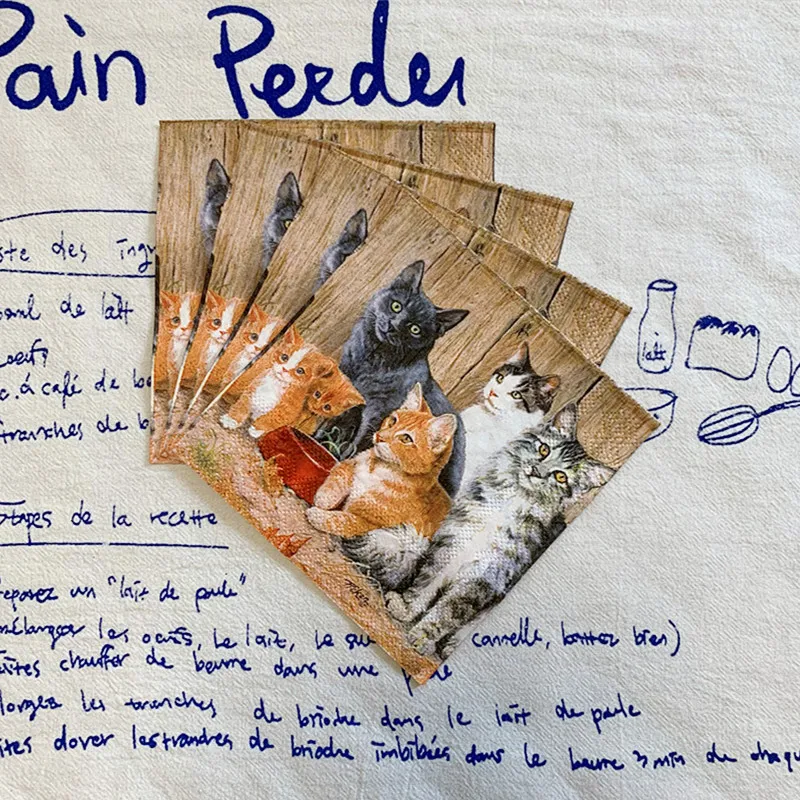 Pain Perdu
ste des ing
de lait
oeufs
c. à café de
tranches de b
lait
Etapes de la recette
réparez un "lait de poule"
mélanger les oeufs, le lait, le su cannelle, battez bien)
aites chauffer de beurre dans une
longez les tranches de brioche dans le lait de poule
ites dorer les tranches de brioche imbibées dans le beurre 3 min de chaqu